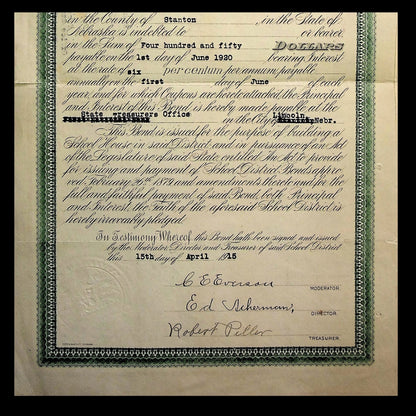 in the County of Stanton , in the State of
Nebraska is indebted to or bearer
in the Sum of Four hundred and fifty DOLLARS
payable on the 1st day of June 1920 bearing Interest
at the rate of six per centum per annum, payable
annually on the first day of June of each
year, and for which Coupons are hereto attached, the Principal
and Interest of this Bond is hereby made payable at the
State Treasurers Office in the City of Lincoln Nebr.
This Bond is issued for the purpose of building a
School House in said District, and in pursuance of an Act
of the Legislature of said State, entitled An Act to provide
for issuing and payment of School District Bonds, approved
February 26th 1879, and amendments thereto and for the
full and faithful payment of said Bond, both Principal
and Interest, the Faith of the aforesaid School District is
hereby irrevocably pledged.
In Testimony Whereof, this Bond hath been signed and issued
by the Moderator, Director and Treasurer of said School District
this 15th day of April 1915
C E Everson
MODERATOR.
Ed Ackerman,
DIRECTOR
Robert Piller
TREASURER.